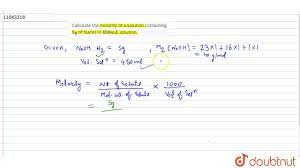 11043218
Calculate the molarity of a solution containing
5g of NaOH in 450mL solution.
Given, NaOH = 5g, (NaOH) = 23x1 + 16x1 + 1x1
= 40 g/mol
Vol. Solⁿ = 450 ml
Molarity = wt of Solute / Mol. wt of Solute × 1000 / Vol of Solⁿ
= 5g
doubtnut